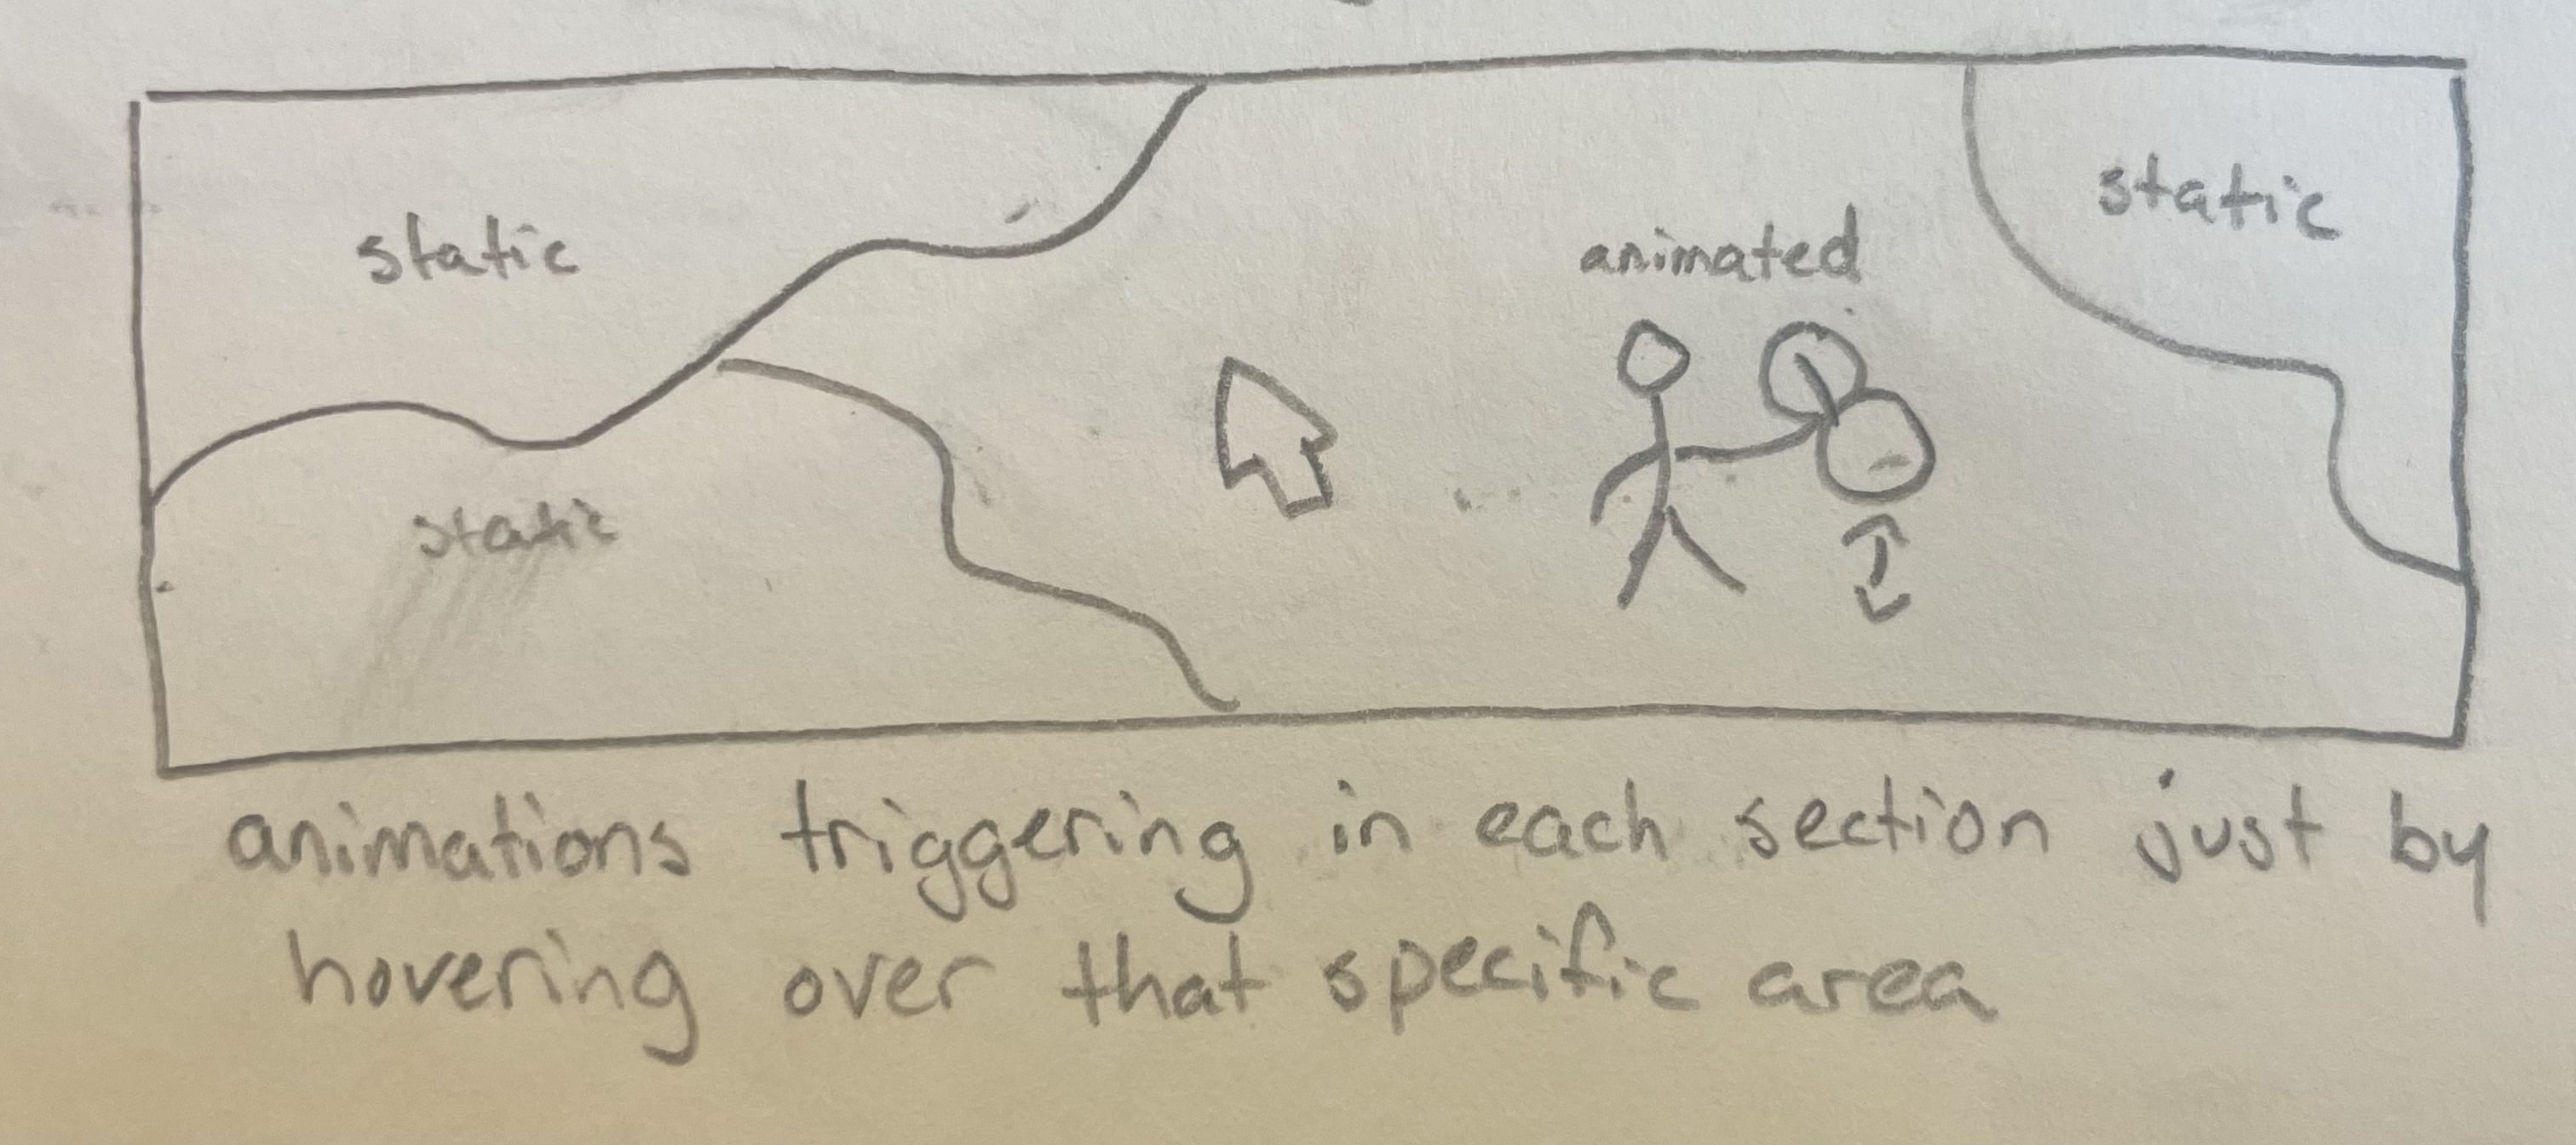 static
static
animated
static
animations triggering in each section just by
hovering over that specific area